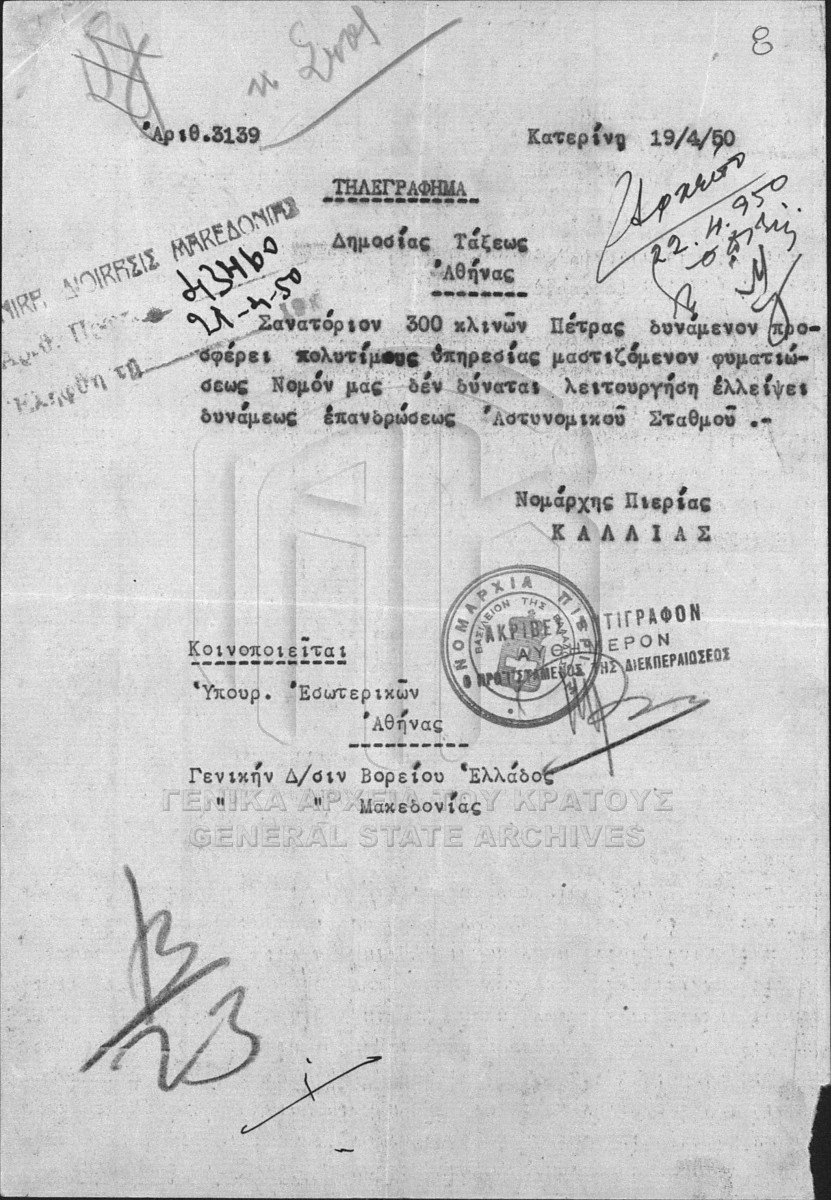 8
Ἀριθ.3139
Κατερίνῃ 19/4/50
ΤΗΛΕΓΡΑΦΗΜΑ
Ἀρχεῖο
22.4.950
ΔΙΟΙΚΗΣΙΣ ΜΑΚΕΔΟΝΙΑΣ
Ἀριθ. Πρωτ. 43490
21-4-50
Δημοσίας Τάξεως
Ἀθήνας
Σανατόριον 300 κλινῶν Πέτρας δυνάμενον προ-
σφέρει πολυτίμους ὑπηρεσίας μαστιζόμενον φυματιώ-
σεως Νομόν μας δέν δύναται λειτουργήση ἐλλείψει
δυνάμεως ἐπανδρώσεως Ἀστυνομικοῦ Σταθμοῦ .-
Νομάρχης Πιερίας
Κ Α Λ Λ Ι Α Σ
ΝΟΜΑΡΧΙΑ ΠΙΕΡΙΑΣ
ΒΑΣΙΛΕΙΟΝ ΤΗΣ ΕΛΛΑΔΟΣ
ΑΚΡΙΒΕΣ ΑΝΤΙΓΡΑΦΟΝ
ΑΥΘΗΜΕΡΟΝ
Ο ΠΡΟΪΣΤΑΜΕΝΟΣ ΤΗΣ ΔΙΕΚΠΕΡΑΙΩΣΕΩΣ
Κοινοποιεῖται
Ὑπουρ. Ἐσωτερικῶν
Ἀθήνας
Γενικήν Δ/σιν Βορείου Ἑλλάδος
" " Μακεδονίας
ΓΕΝΙΚΑ ΑΡΧΕΙΑ ΤΟΥ ΚΡΑΤΟΥΣ
GENERAL STATE ARCHIVES
Β/23